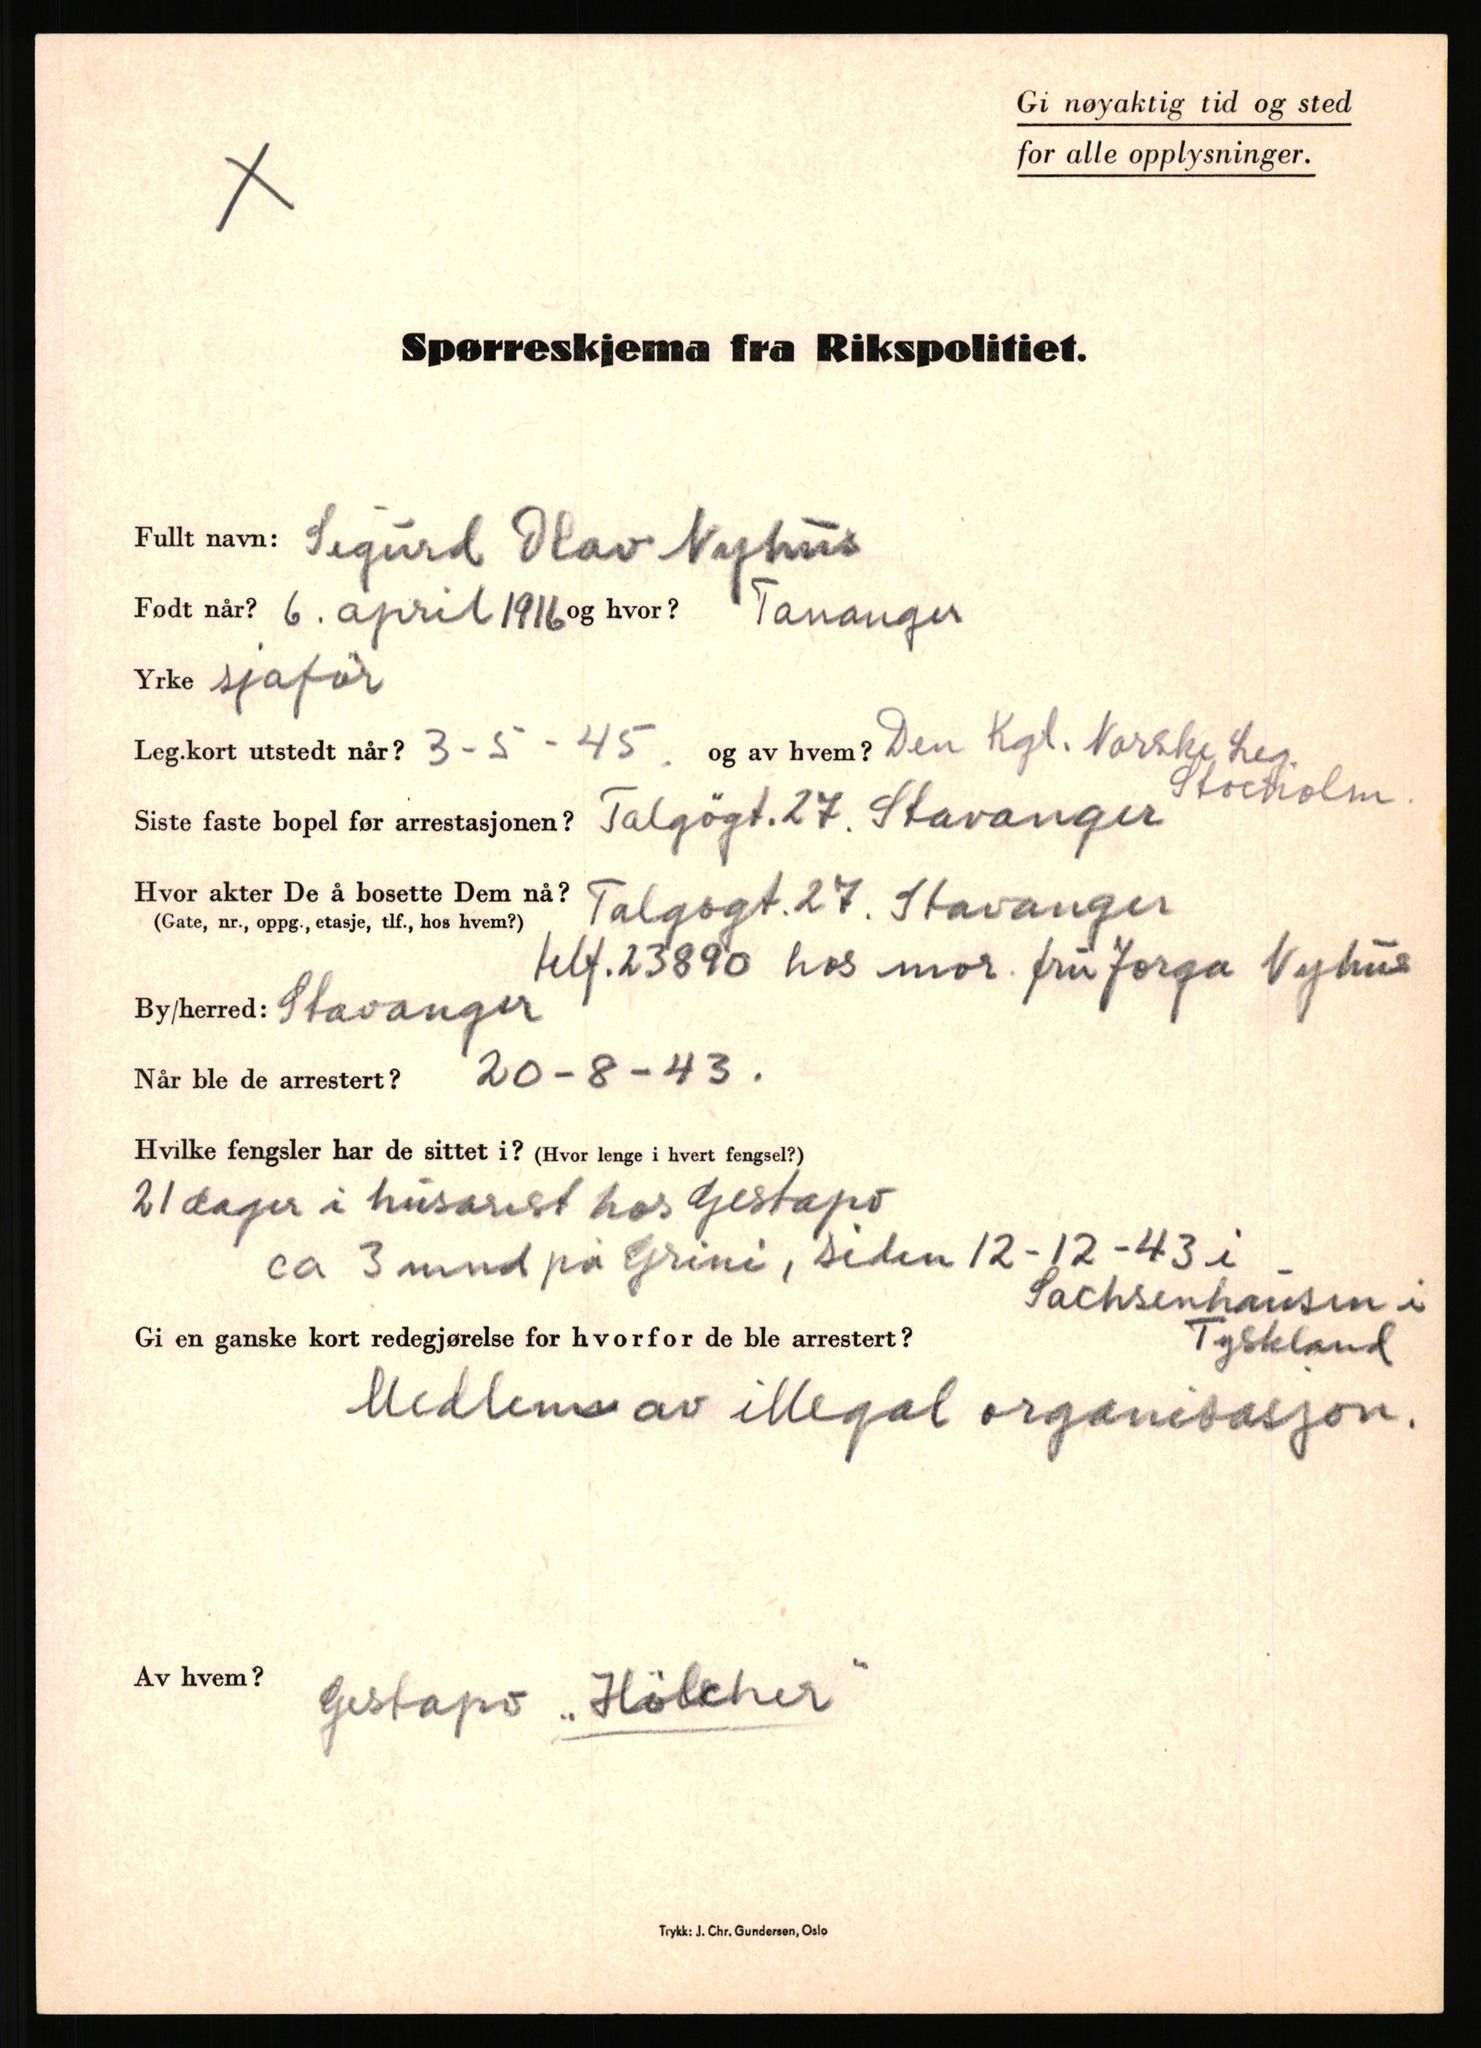 Gi nøyaktig tid og sted
for alle opplysninger.
X
Spørreskjema fra Rikspolitiet.
Fullt navn: Sigurd Olav Nyhus
Født når? 6. april 1916 og hvor? Tananger
Yrke sjaför
Leg.kort utstedt når? 3-5-45. og av hvem? Den Kgl. Norske Leg.
Stocholm.
Siste faste bopel før arrestasjonen? Talgögt. 27. Stavanger
Hvor akter De å bosette Dem nå? Talgogt. 27. Stavanger
(Gate, nr., oppg., etasje, tlf., hos hvem?)
telf. 23890 hos mor. fru Jorga Nyhus
By/herred: Stavanger
Når ble de arrestert? 20-8-43.
Hvilke fengsler har de sittet i? (Hvor lenge i hvert fengsel?)
21 dager i husarest hos Gestapo
ca 3 mnd på Grini, siden 12-12-43 i
Sachsenhausen i
Tyskland
Gi en ganske kort redegjørelse for hvorfor de ble arrestert?
Medlem av illegal organisasjon.
Av hvem? Gestapo „Hölcher"
Trykk: J. Chr. Gundersen, Oslo